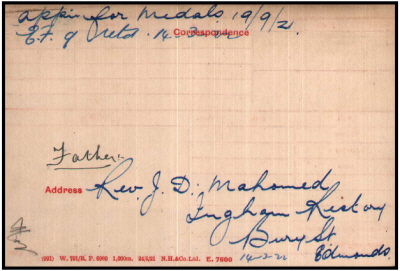 appn for medals 19/9/21
E.F. 9 retd. 14-3-22
Correspondence
Father.
Address Rev. J. D. Mahomed
Ingham Rectory
Bury St
Edmunds.
14-2-22
(931) W. 791/R. P. 6090 1,000m. 24/5/21 N.H.&Co.Ltd. E. 7690